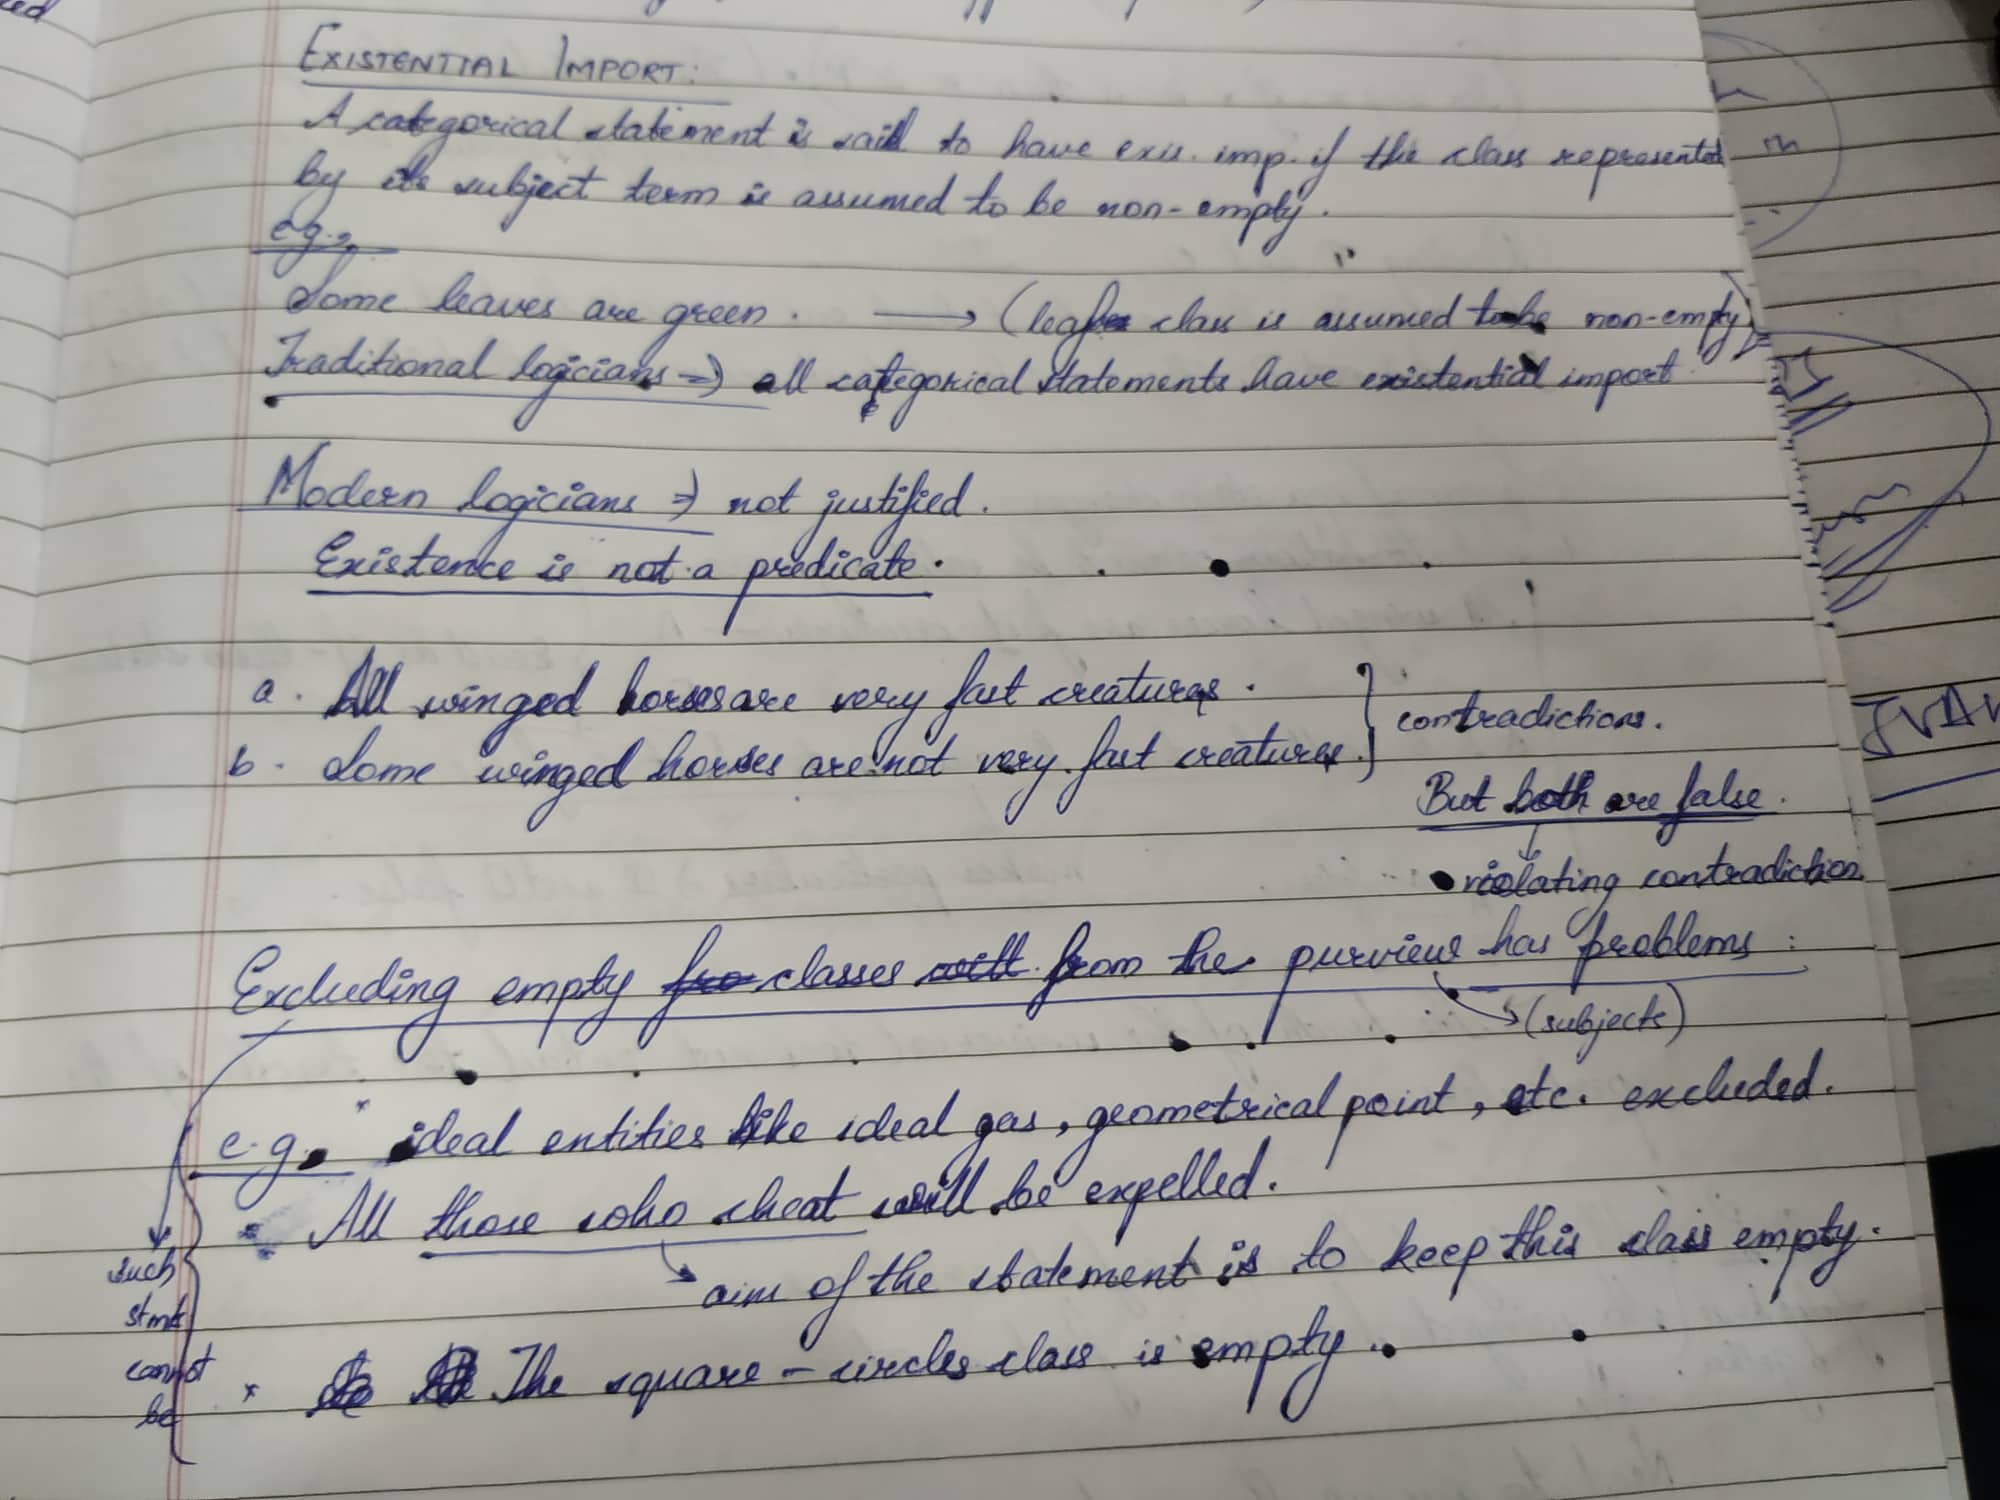 EXISTENTIAL IMPORT:
A categorical statement is said to have exis. imp. if the class represented
by its subject term is assumed to be non-empty.
e.g.,
Some leaves are green. → (leaf class is assumed to be non-empty)
Traditional logicians ⇒ all categorical statements have existential import
Modern logicians ⇒ not justified.
Existence is not a predicate.
a. All winged horses are very fast creatures.
b. Some winged horses are not very fast creatures.
} contradictions.
But both are false.
↓
violating contradiction
Excluding empty classes from the purview has problems:
→ (subjects)
e.g. * ideal entities like ideal gas, geometrical point, etc. excluded.
* All those who cheat will be expelled.
→ aim of the statement is to keep this class empty.
* The square-circles class is empty.
such
stmt
cannot
be
JVAV